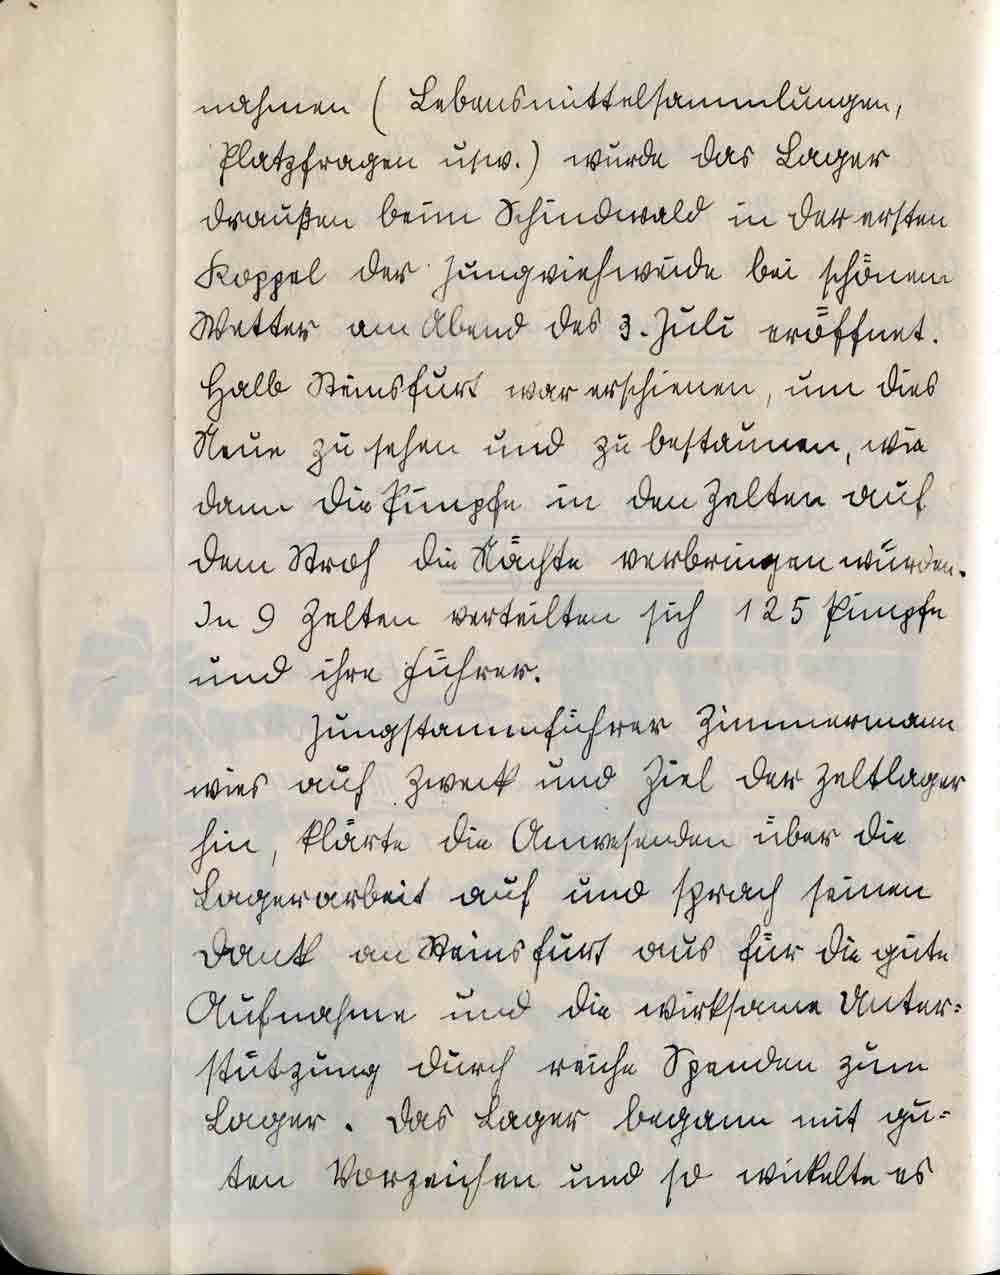 nahmen (Lebensmittelsammlungen,
Platzfragen usw.) wurde das Lager
draußen beim Schindwald in der ersten
Koppel der Jungviehweide bei schönem
Wetter am Abend des 3. Juli eröffnet.
Halb Steinsfurt war erschienen, um dies
Neue zu sehen und zu bestaunen, wie
dann die Pimpfe in den Zelten auf
dem Stroh die Nächte verbringen würden.
In 9 Zelten verteilten sich 125 Pimpfe
und ihre Führer.
Jungstammführer Zimmermann
wies auf Zweck und Ziel der Zeltlager
hin, klärte die Anwesenden über die
Lagerarbeit auf und sprach seinen
Dank an Steinsfurt aus für die gute
Aufnahme und die wirksame Unter=
stützung durch reiche Spenden zum
Lager. Das Lager begann mit gu=
ten Vorzeichen und so wickelte es